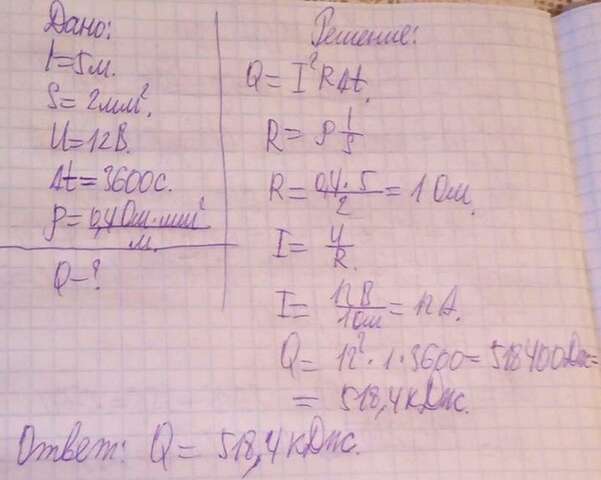 Дано:
l=5м.
S=2мм².
U=12В.
Δt=3600с.
ρ=0,4Ом·мм²/м.
Q-?
Решение:
Q=I²RΔt.
R=ρ l/S
R=0,4·5/2=1Ом.
I=U/R.
I=12В/1Ом=12А.
Q=12²·1·3600=518400Дж=
=518,4кДж.
Ответ: Q=518,4кДж.